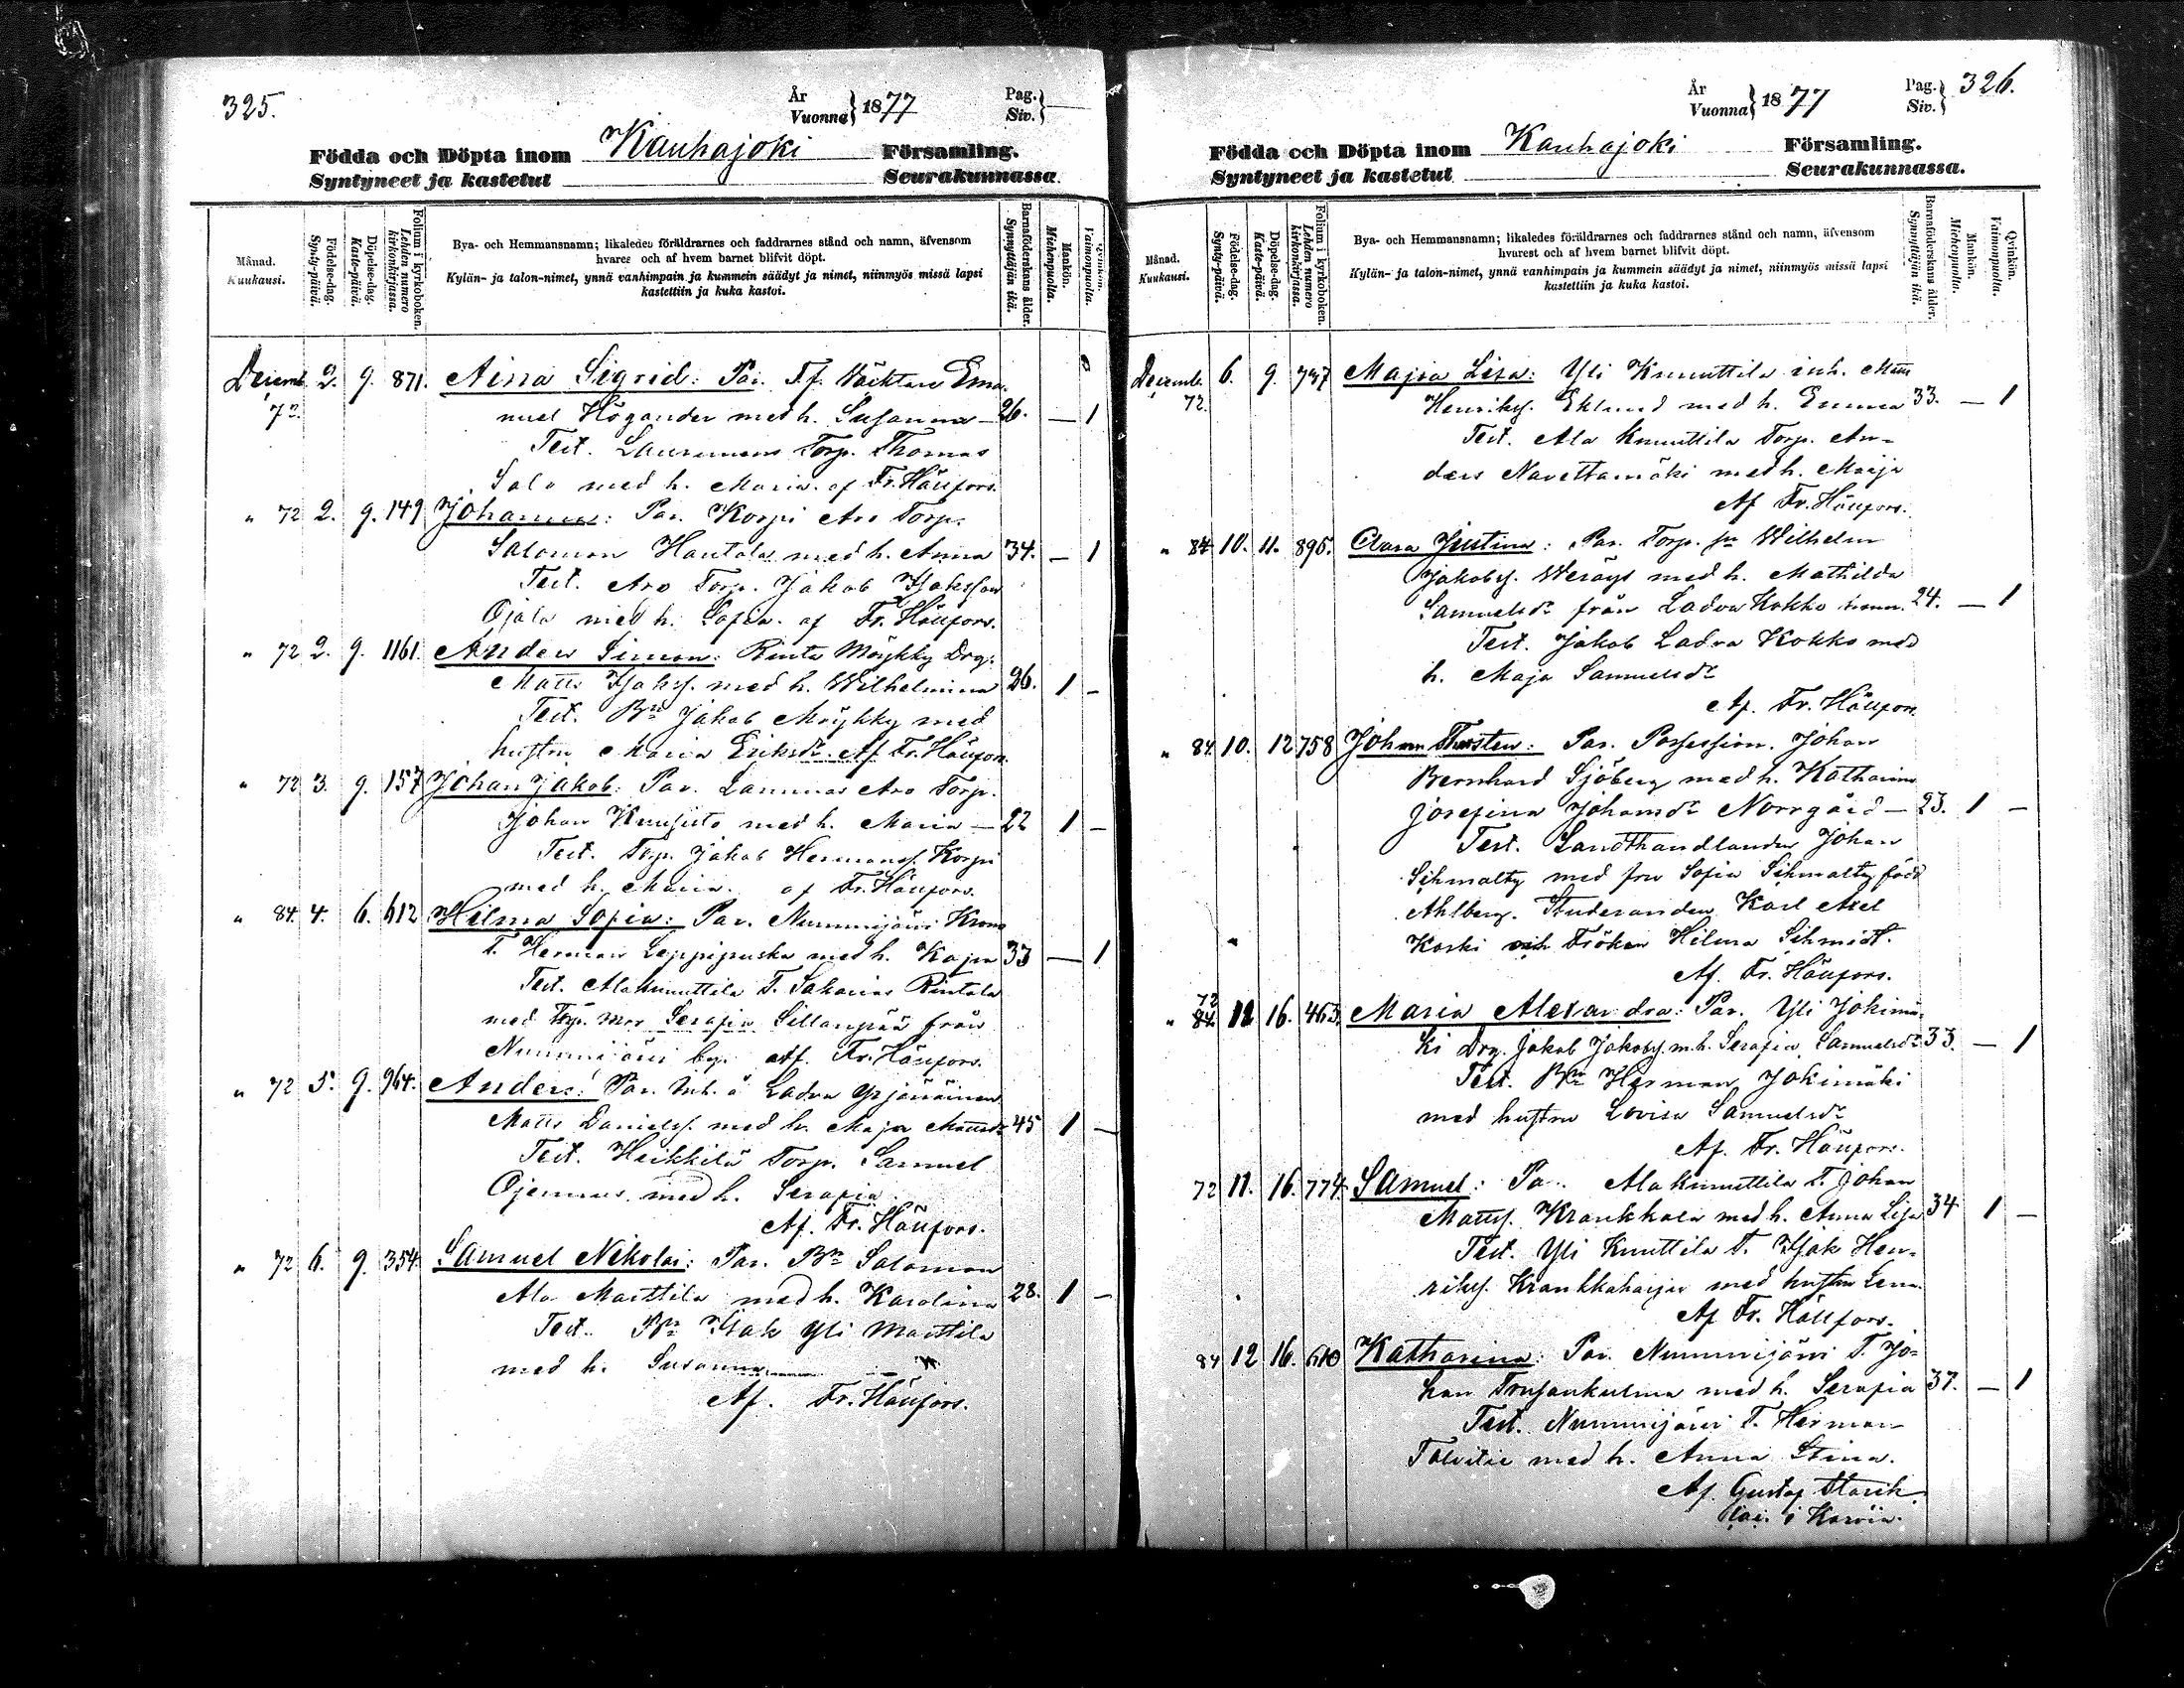 325.
År
Vuonna
1877
Pag.
Siv.
Födda och Döpta inom Kauhajoki Församling.
Syntyneet ja kastetut Seurakunnassa.
Månad.
Kuukausi.
Födelse-dag.
Synty-päivä.
Döpelse-dag.
Kaste-päivä.
Folium i kyrkoboken.
Lehden numero kirkonkirjassa.
Bya- och Hemmansnamn; likaledes föräldrarnes och faddrarnes stånd och namn, äfvensom
hvarest och af hvem barnet blifvit döpt.
Kylän- ja talon-nimet, ynnä vanhimpain ja kummein säädyt ja nimet, niinmyös missä lapsi
kastettiin ja kuka kastoi.
Barnaföderskans ålder.
Synnyttäjän ikä.
Mankön.
Miehenpuolta.
Qvinkön.
Vaimonpuolta.
Decemb. 2. 9. 871. Aina Sigrid: Par. T.f. Väcktare Ema-
72. nuel Högander med h. Susanna 26. — 1
Test. Torp. Thomas
Salo med h. Maria. af Fr. Hällfors.
" 72 2. 9. 149 Johanna: Par. Korpi Aro Torp.
Salomon Hautala med h. Anna 34. — 1
Test. Aro Torp. Jakob Isaksson
Ojala med h. Sofia. af Fr. Hällfors.
" 72 2. 9. 1161. Anders Simon: Rinta Möykky Drg.
Matts Isaks. med h. Wilhelmina 26. 1 —
Test. Bn Jakob Möykky med
hustru Maria Eriksdr. Af Fr. Hällfors.
" 72 3. 9. 157 Johan Jakob: Par. Lammas Aro Torp.
Johan Kuusisto med h. Maria — 22 1 —
Test. Torp. Jakob Hermanss. Korpi
med h. Maria. af Fr. Hällfors.
" 84. 4. 6. 612 Hilma Sofia: Par. Nummijärvi Krono
T. Herman Leppipuska med h. Kajsa 33 — 1
Test. Alaknuttila T. Sakarias Rintala
med Torp. mor Serafia Sillanpää från
Nummijärvi by. Af. Fr. Hällfors.
" 72 5. 9. 964. Anders: Par. Inh. å Ladva Yrjänäinen
Matts Daniels. med h. Maja Mattsdr 45 1 —
Test. Heikkilä Torp. Samuel
Ojennus med h. Serafia.
Af. Fr. Hällfors.
" 72 6. 9. 354. Samuel Nikolai: Par. Bn Salomon
Ala Marttila med h. Karolina 28. 1 —
Test. Bn Isak Yli Marttila
med h. Susanna
Af. Fr. Hällfors.
År
Vuonna
1877
Pag.
Siv.
326.
Födda och Döpta inom Kauhajoki Församling.
Syntyneet ja kastetut Seurakunnassa.
Månad.
Kuukausi.
Födelse-dag.
Synty-päivä.
Döpelse-dag.
Kaste-päivä.
Folium i kyrkoboken.
Lehden numero kirkonkirjassa.
Bya- och Hemmansnamn; likaledes föräldrarnes och faddrarnes stånd och namn, äfvensom
hvarest och af hvem barnet blifvit döpt.
Kylän- ja talon-nimet, ynnä vanhimpain ja kummein säädyt ja nimet, niinmyös missä lapsi
kastettiin ja kuka kastoi.
Barnaföderskans ålder.
Synnyttäjän ikä.
Mankön.
Miehenpuolta.
Qvinkön.
Vaimonpuolta.
Decemb. 6. 9. 737 Majsa Lisa: Yli Knuuttila inh.
72. Henriks. Eklund med h. Emma 33. — 1
Test. Ala Knuuttila Torp. An-
ders Navettamäki med h. Maija
Af Fr. Hällfors.
" 84. 10. 11. 895. Clara Justina: Par. Torp. Wilhelm
Jakobs. Weräys med h. Mathilda
Samuelsdr från Ladva Kokko hemm. 24. — 1
Test. Jakob Ladva Kokko med
h. Maja Samuelsdr
Af. Fr. Hällfors.
" 84. 10. 12 758 Johan Thorsten: Par. Possession. Johan
Bernhard Sjöberg med h. Katharina
Josefina Johansdr Norrgård — 23. 1 —
Test. Landthandlanden Johan
med fru Sofia född
Ahlberg. Studeranden Karl Axel
Koski och Fröken Hilma Schmidt.
Af. Fr. Hällfors.
72
" 84. 11 16. 463. Maria Alexandra: Par. Yli Jokimä-
ki Drg. Jakob Jakobs. m.h. Serafia Samuelsdr 33. — 1
Test. Bn Herman Jokimäki
med hustru Lovisa Samuelsdr
Af. Fr. Hällfors.
72 11. 16. 774. Samuel: Par. Alaknuuttila T. Johan
Matts. Kraukkala med h. Anna Lisa 34 1 —
Test. Yli Knuttila T. Isak Hen-
riks. Kraukkaharju med hustru Lena.
Af Fr. Hällfors.
84 12 16. 610 Katharina: Par. Nummijärvi T. Jo-
han med h. Serafia 37. — 1
Test. Nummijärvi T. Herman
Talvitie med h. Anna Stina.
Af. Gustaf Starck
i Karvia.